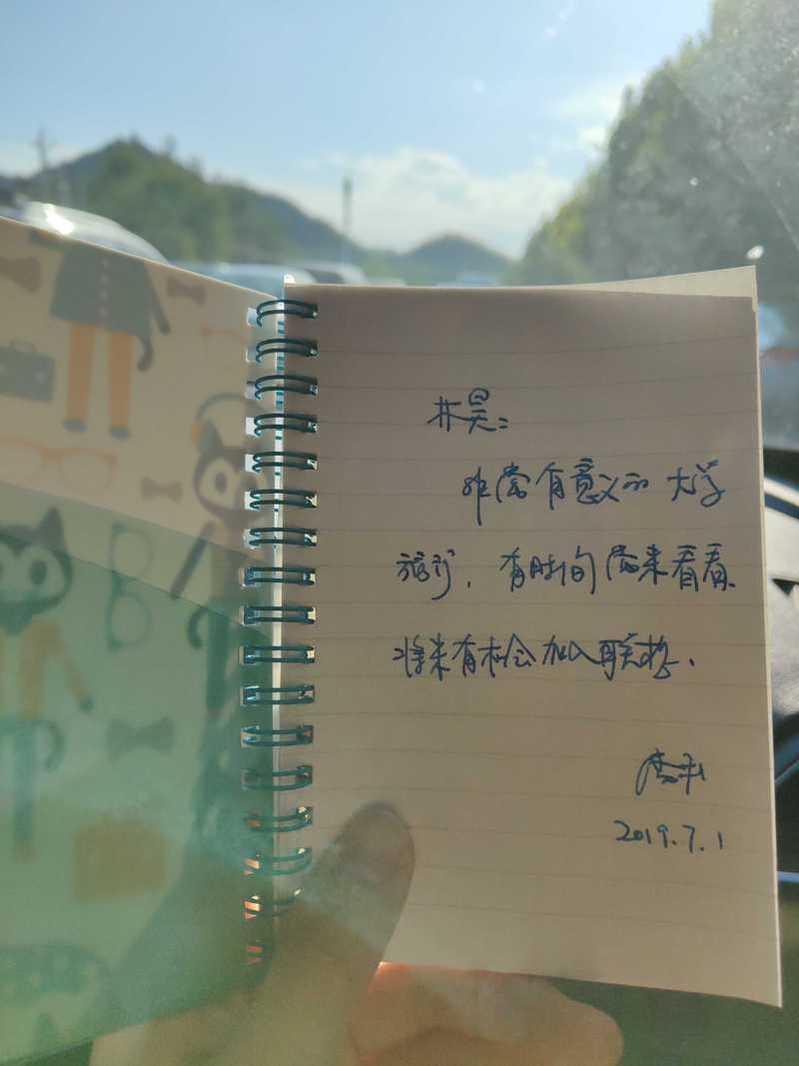 林昊：
非常有意义的大学
旅行，有时间常来看看、
将来有机会加入联想、
2019.7.1